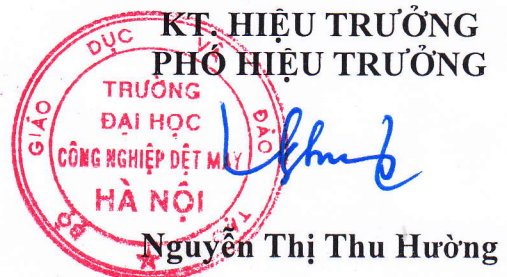 KT. HIỆU TRƯỞNG
PHÓ HIỆU TRƯỞNG
BỘ GIÁO DỤC VÀ ĐÀO TẠO
TRƯỜNG
ĐẠI HỌC
CÔNG NGHIỆP DỆT MAY
HÀ NỘI
Nguyễn Thị Thu Hường